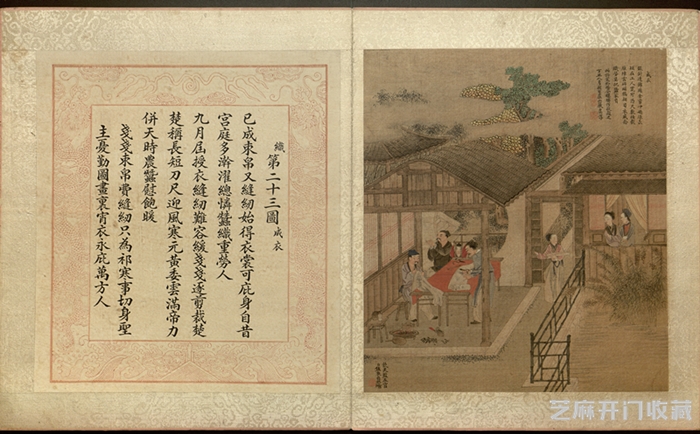 織 第二十三圖 成衣
已成束帛又縫紉始得衣裳可庇身自昔
宮庭多澣濯總憐蠶織重勞人
九月屆授衣縫紉難容緩戔戔逐剪裁楚
楚稱長短刀尺迎風寒元黃委雲滿帝力
併天時農蠶慰飽暖
戔戔束帛費縫紉只為祁寒事切身聖
主憂勤圖畫裏宵衣永庇萬方人
成衣
芝麻开门收藏